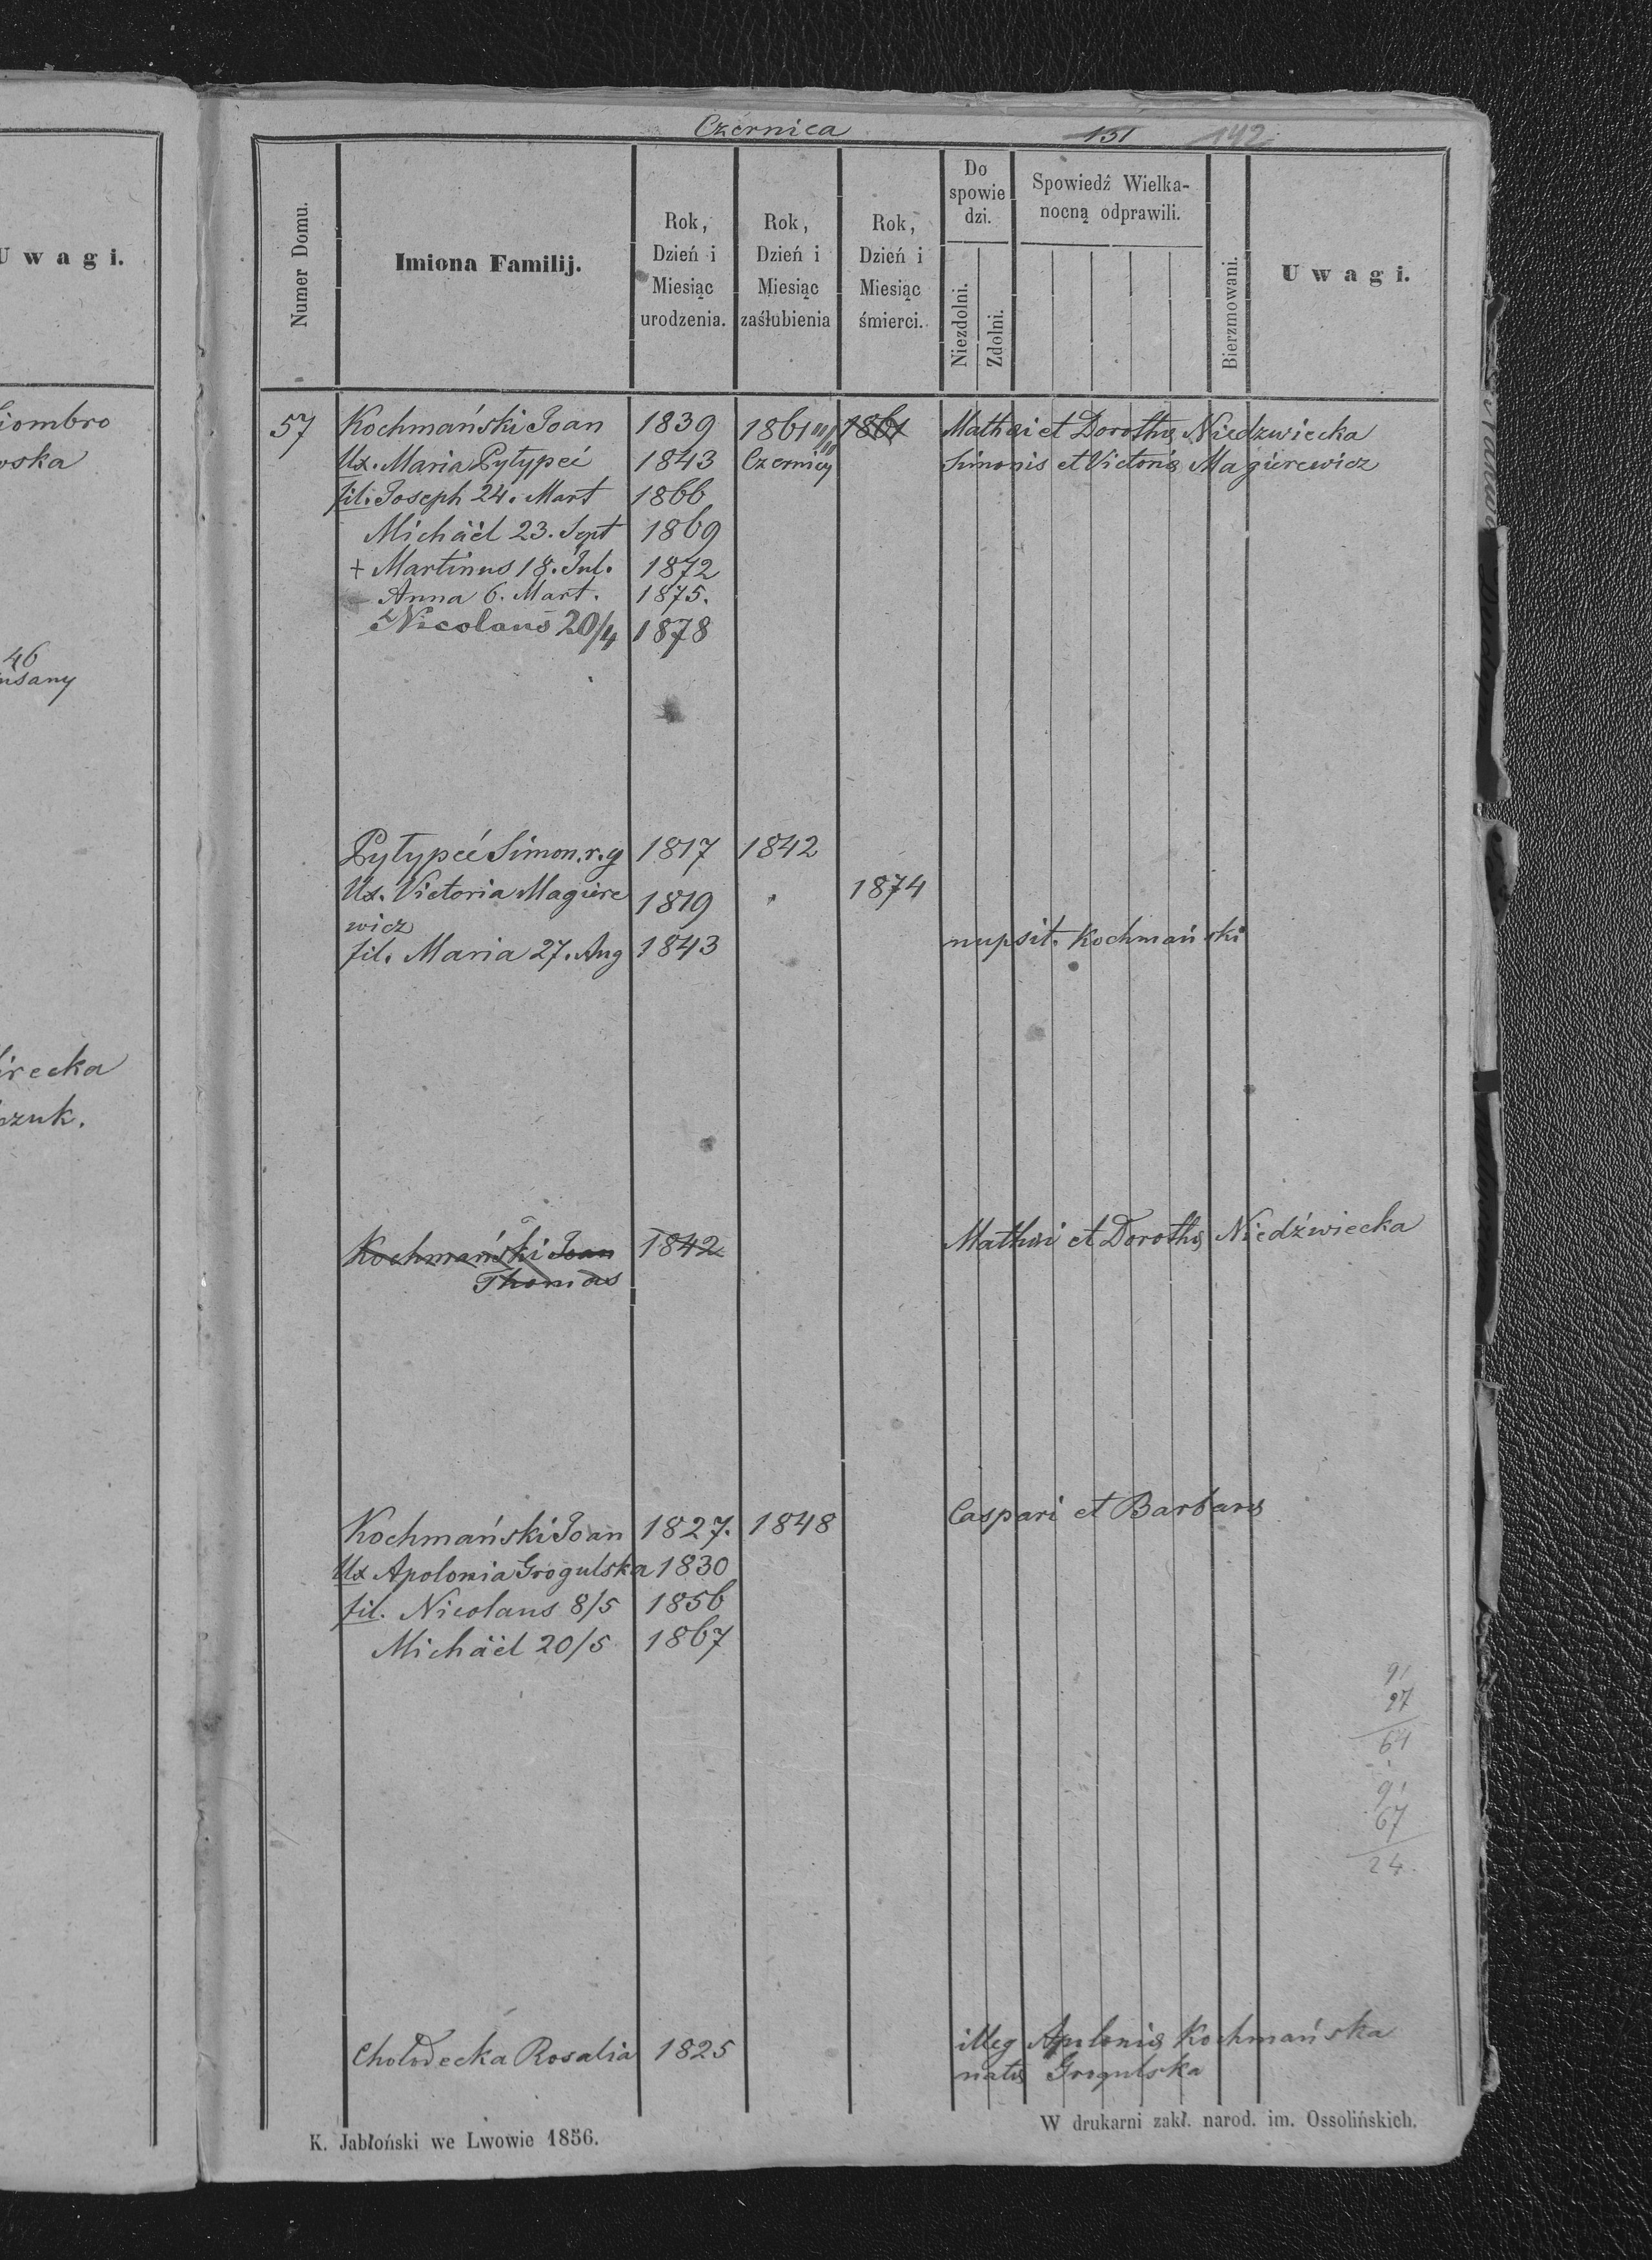 Czernica 131 142.
Uwagi.
iombro
wska
46
irecka
Numer Domu.
Imiona Familij.
Rok, Dzień i Miesiąc urodzenia.
Rok, Dzień i Miesiąc zaślubienia
Rok, Dzień i Miesiąc śmierci.
Do spowie dzi.
Niezdolni.
Zdolni.
Spowiedź Wielka-
nocną odprawili.
Bierzmowani.
Uwagi.
57 Kochmański Joan 1839 1861 1861 Mathæi et Dorothę Niedzwiecka
Ux. Maria Pyłypeć 1843 Czernicy Simonis et Victorię Magierewicz
fil. Joseph 24. Mart 1866
Michäel 23. Sept 1869
+ Martinus 18. Jul. 1872
Anna 6. Mart. 1875.
Nicolaus 20/4 1878
Pyłypeć Simon. r. g 1817 1842
Ux. Victoria Magiere 1819 " 1874
wicz
fil. Maria 27. Aug 1843 nupsit. Kochmański
Kochmański Joan 1842 Mathæi et Dorothę Niedźwiecka
Thomas
Kochmański Joan 1827. 1848 Caspari et Barbarę
Ux Apolonia Grogulska 1830
fil. Nicolaus 8/5 1856
Michäel 20/5 1867
91
27
64
91
67
24
Chołodecka Rosalia 1825 illeg Apolonię Kochmańska
natę Grogulska
K. Jabłoński we Lwowie 1856.
W drukarni zakł. narod. im. Ossolińskich.